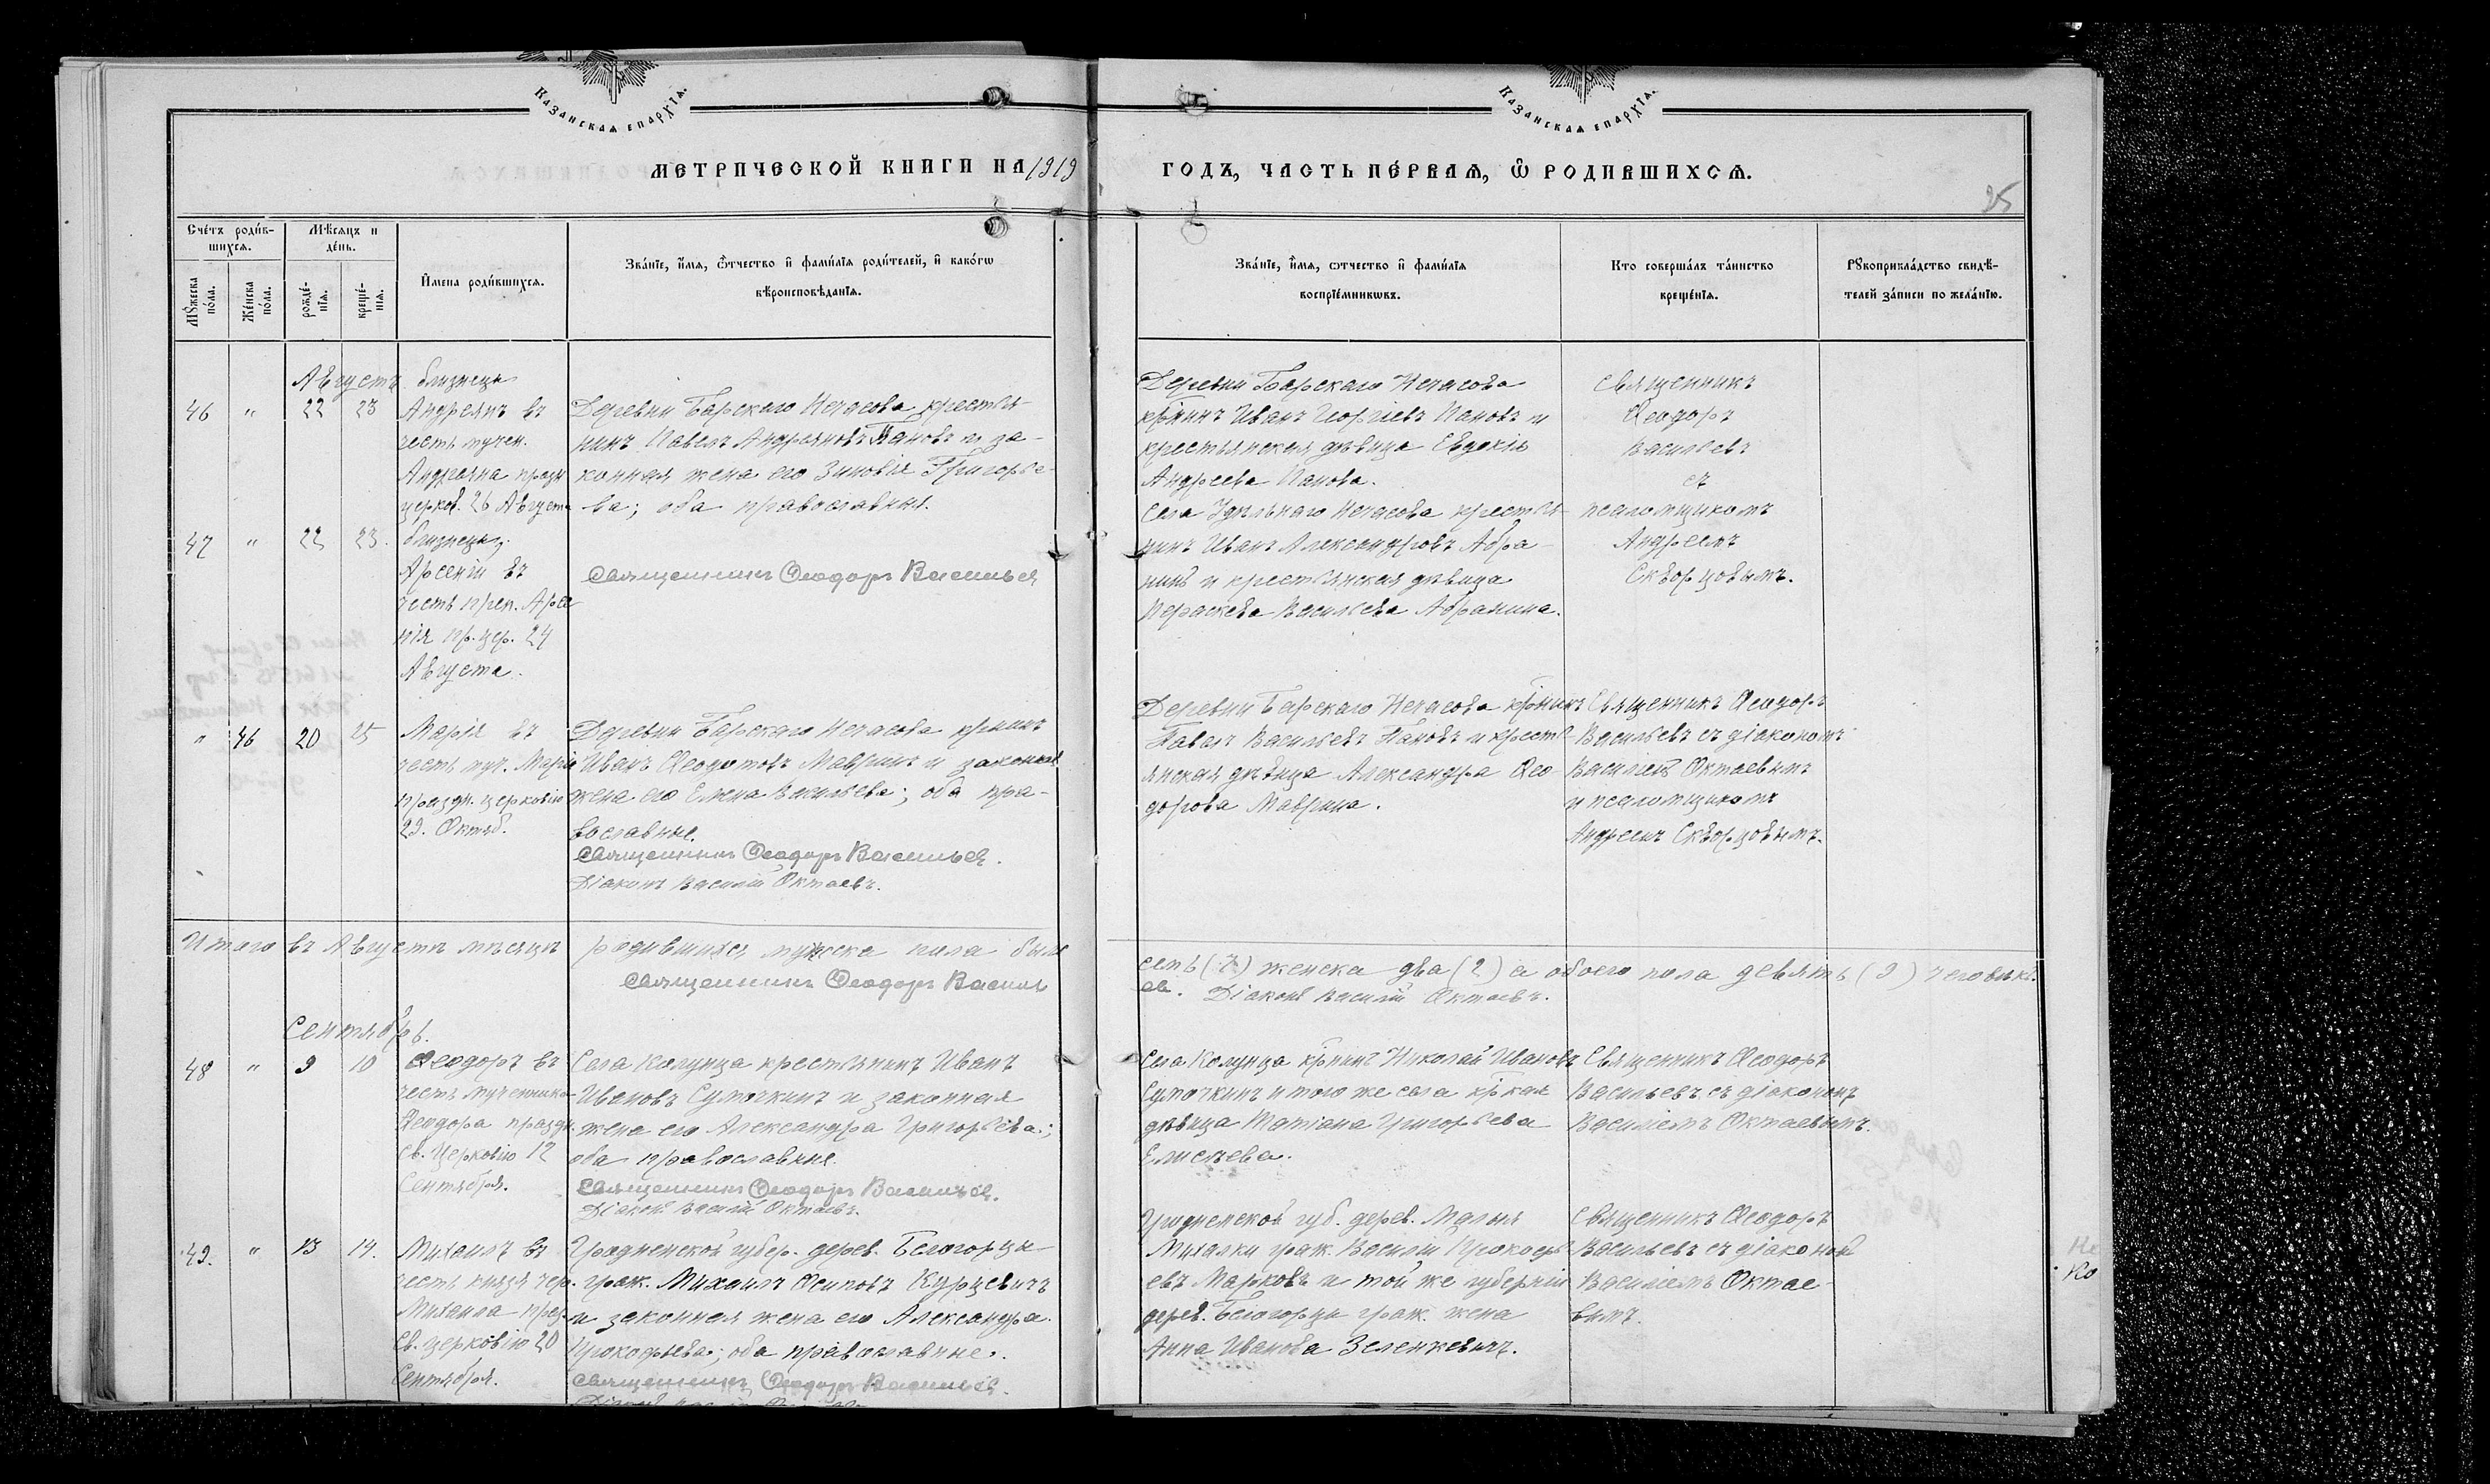 Казанская епархїѧ.
Казанская епархїѧ.
МЕТРИЧЕСКОЙ КНИГИ НА 1919
ГОДЪ, ЧАСТЬ ПЕ́РВАѦ, Ѽ РОДИВШИХСѦ.
25
Сче́тъ роди́в-
шихсѧ.
Мѣ́сѧцъ и
де́нь.
Мꙋ́жеска
по́ла.
Же́нска
по́ла.
рожде́-
нїѧ.
креще́-
нїѧ.
И҆мена роди́вшихсѧ.
Зва́нїе, и҆́мѧ, ѻ҆́тчество и҆ фами́лїѧ роди́телей, и҆ како́гѡ
вѣроисповѣ́данїѧ.
Зва́нїе, и҆́мѧ, ѻтчество и҆ фами́лїѧ
воспрїе́мникѡвъ.
Кто соверша́лъ та́инство
креще́нїѧ.
Рꙋкоприкла́дство свидѣ́-
телей за́писи по жела́нїю.
Августъ
46 " 22 23
близнецы
Андреянъ въ
честь мучен.
Андреяна празд
церков. 26 Августа
Деревни Барскаго Ненасова крестья-
нинъ Павелъ Андреяновъ Пановъ и за-
конная жена его Зиновія Григорье-
ва; оба православные.
Деревни Барскаго Ненасова
кр̃нинъ Иванъ Георгіевъ Пановъ и
крестьянская дѣвица Евдокія
Андреева Панова.
Священникъ
Ѳеодоръ
Васильевъ
съ
псаломщикомъ
Андреемъ
Скворцовымъ.
47 " 22 23.
близнецы.
Арсеній въ
честь преп. Арсе
нія пр. цер. 24
Августа.
Священникъ Ѳеодоръ Васильев
Села Удѣльнаго Ненасова крестья-
нинъ Иванъ Александровъ Абра-
нинъ и крестьянская дѣвица
Параскева Васильева Абранина.
" 46 20 25
Марія въ
честь муч. Маріи
праздн. церковію
29. Октяб.
Деревни Барскаго Ненасова кр̃нинъ
Иванъ Ѳеодотовъ Мавринъ и законная
жена его Елена Васильева; оба пра-
вославные.
Священникъ Ѳеодоръ Васильев.
Діаконъ Василій Октаевъ.
Деревни Барскаго Ненасова кр̃нинъ
Павелъ Васильевъ Пановъ и кресть-
янская дѣвица Александра Ѳео-
дорова Маврина.
Священникъ Ѳеодоръ
Васильевъ съ діакономъ
Василіемъ Октаевымъ
и псаломщикомъ
Андреемъ Скворцовымъ.
Итого въ Августѣ мѣсяцѣ родившихся мужска пола было
семь (7) женска два (2) а обоего пола девять (9) человѣкъ.
Священникъ Ѳеодоръ Василь
ев. Діаконъ Василій Октаевъ.
Сентябрь.
48 " 9 10
Ѳеодоръ въ
честь мученика
Ѳеодора праздн.
св. Церковію 12
Сентября.
Села Колунца крестьянинъ Иванъ
Ивановъ Сумочкинъ и законная
жена его Александра Григорьева;
оба православные.
Священникъ Ѳеодоръ Васильев.
Діакон Василій Октаевъ.
Села Колунца кр̃нинъ Николай Ивановъ
Сумочкинъ и того же села кр̃кая
дѣвица Татіана Григорьева
Елисеева.
Священникъ Ѳеодоръ
Васильевъ съ діакономъ
Василіемъ Октаевымъ.
49. " 13 14.
Михаилъ въ
честь князя чер.
Михаила праз.
св. церковію 20
Сентября.
Гродненской губер. дерев. Белогорцы
граж. Михаилъ Осиповъ Курцевичъ
и законная жена его Александра
Прокофьева; оба православные.
Священникъ Ѳеодоръ Васильев.
Гродненской губ. дерев. Малыя
Михалки граж. Василій Прокофь
евъ Марковъ и той же губерніи
дерев. Белогорцы граж. жена
Анна Иванова Зеленкевичъ.
Священникъ Ѳеодоръ
Васильевъ съ діакономъ
Василіемъ Октае-
вымъ.